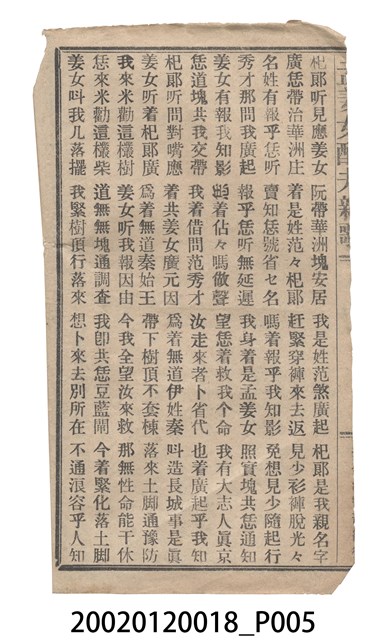 孟姜女配夫新歌
杞郎听見應姜女 阮帶華洲塊安居 我是姓范煞廣起 杞郎是我親名字
廣恁帶治華洲庄 着是姓范々杞郎 赶緊穿褲來去返 見少衫褲脫光々
名姓有報乎恁听 賣知恁號省乜名 嗎着報乎我知影 免想見少隨起行
秀才那問我廣起 報乎恁听無延遲 我身着是孟姜女 照實塊共恁通知
姜女有報我知影 着佔々嗎敬聲 望恁着救我个命 我有大志人眞京
恁道塊共我交帶 我着借問范秀才 汝走來者卜省代 也着廣起乎我知
杞郎听問對嘴應 着共姜女廣元因 爲着無道伊姓秦 叫造長城事是眞
姜女听着杞郎廣 爲着無道秦始王 帶下樹頂不套棟 落來土脚通豫防
我來米勸這欉樹 姜女听我報因由 今我全望汝來救 那無性命能干休
恁來米勸這欉柴 道無無塊通調査 我卽共恁豆藍鬧 今着緊化落土脚
姜女叫我几落擺 我緊樹頂行落來 想卜來去別所在 不通浪容乎人知
20020120018_P005